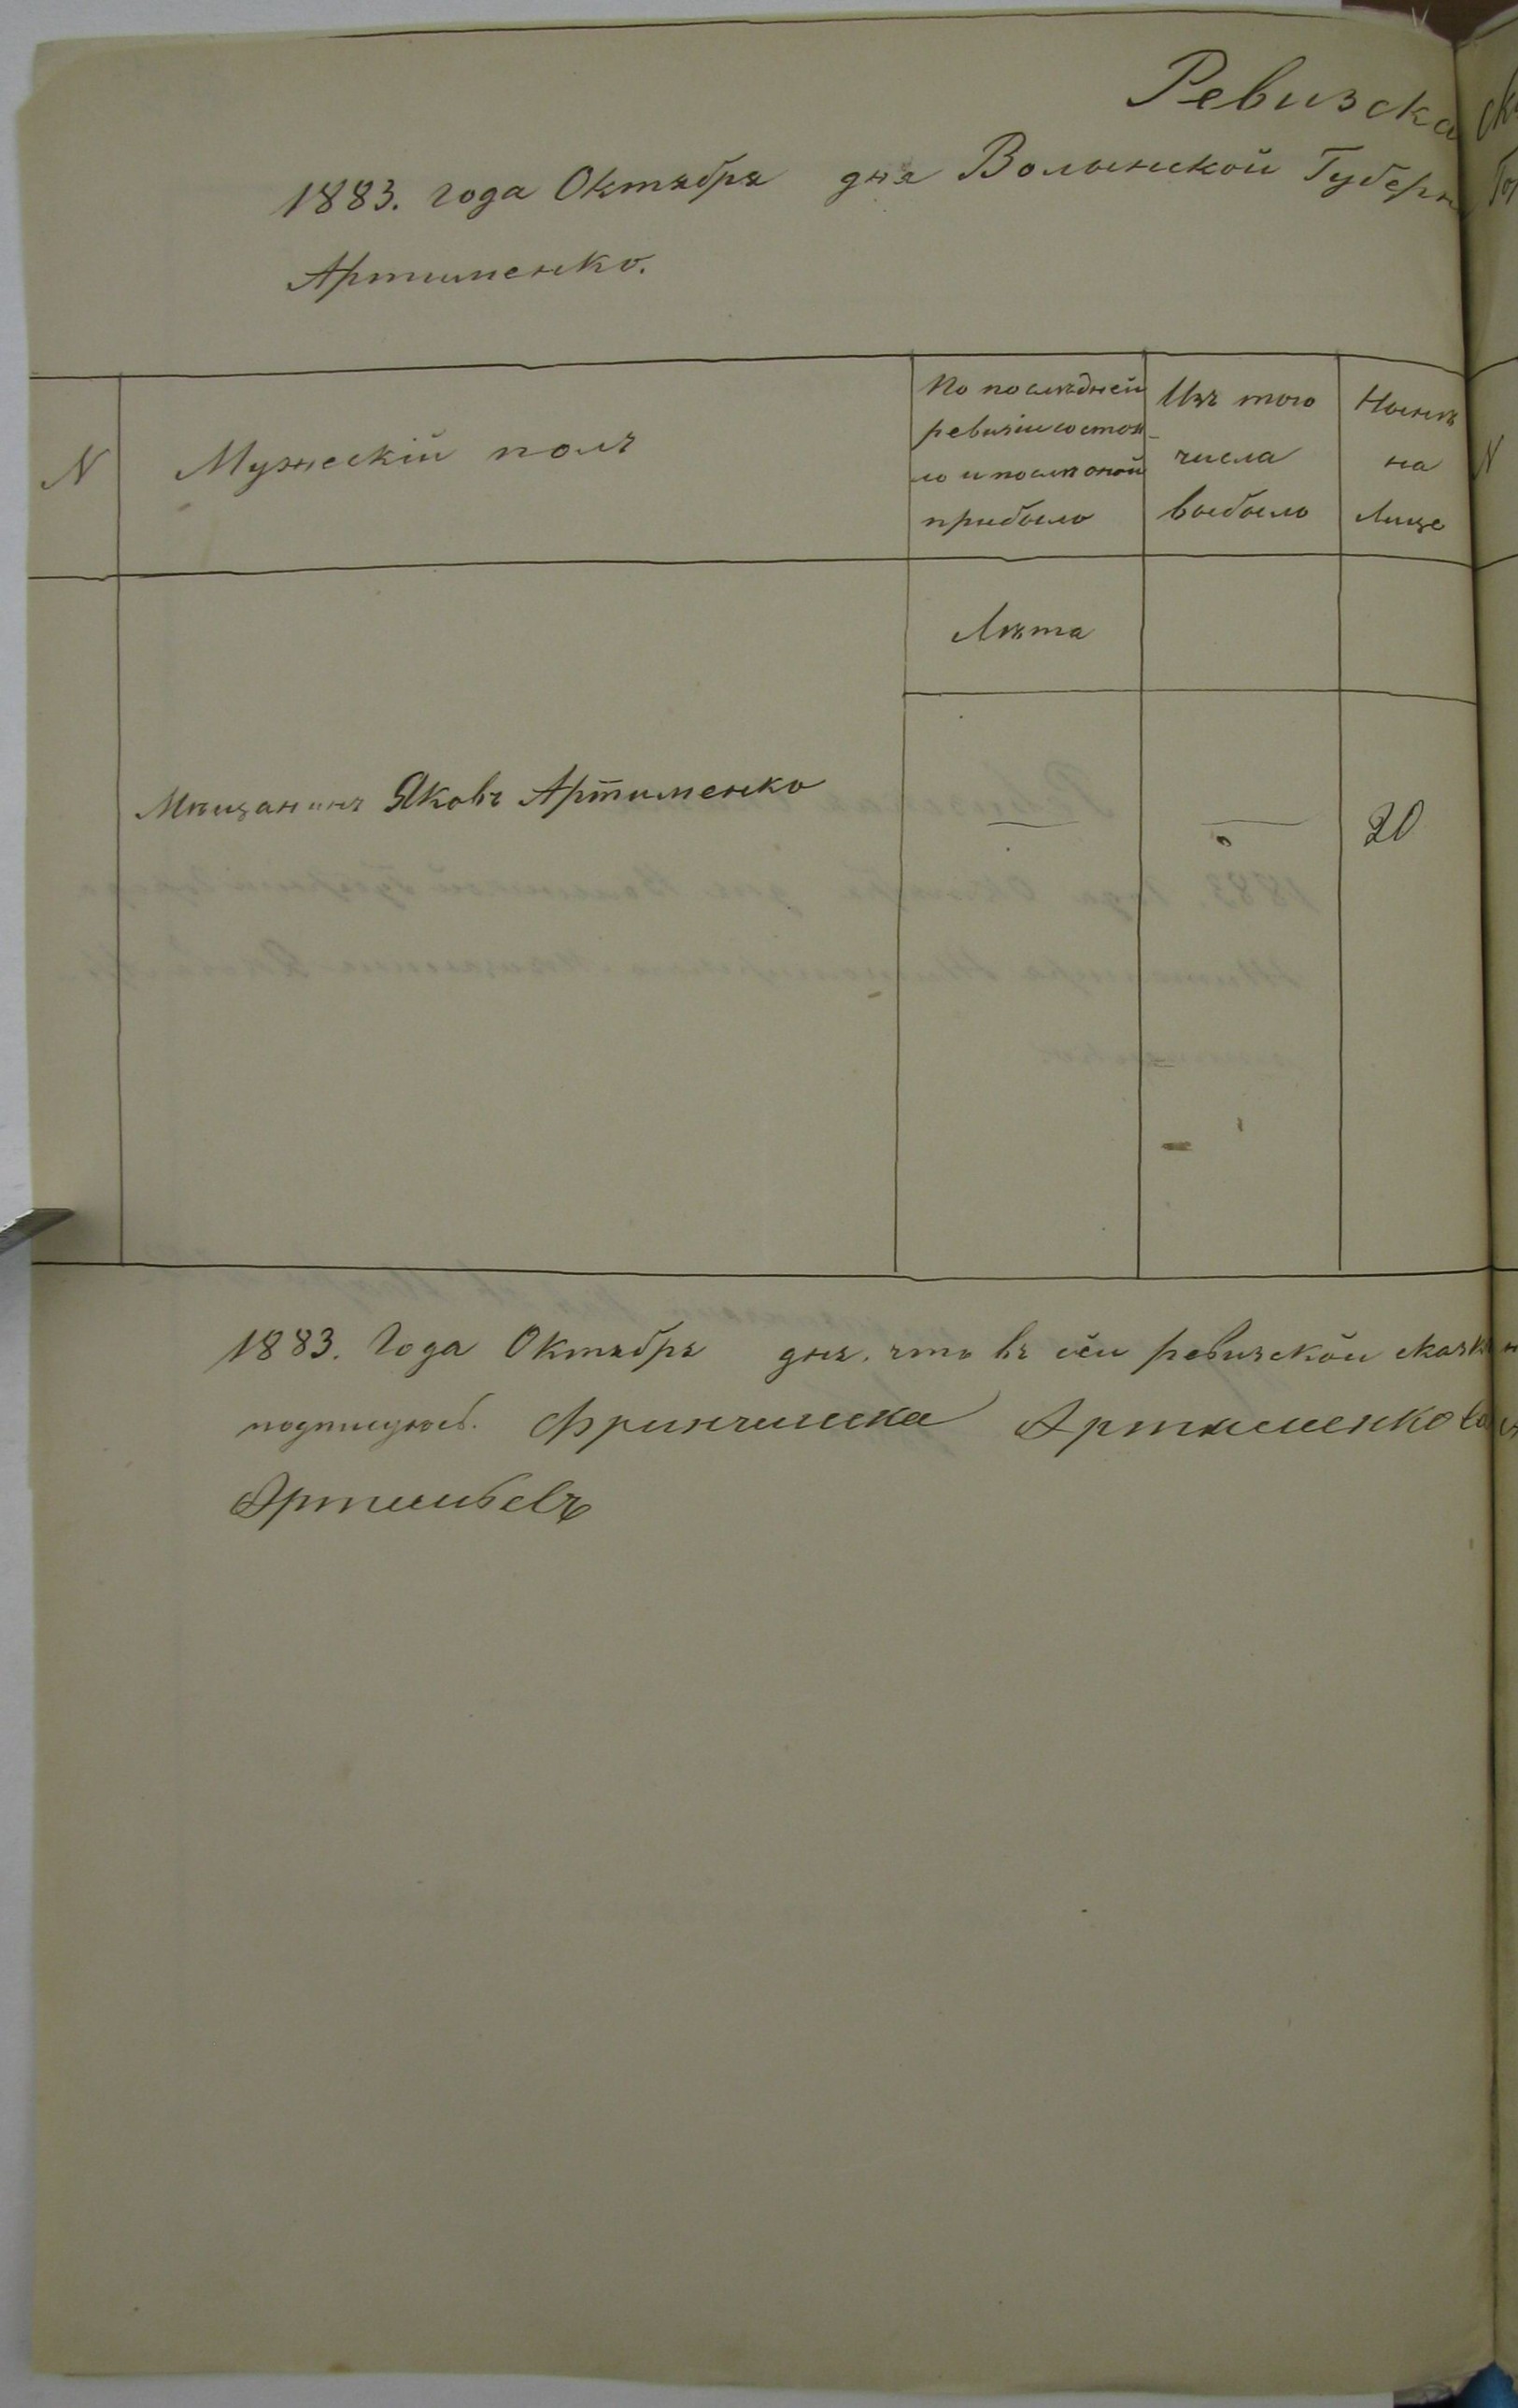 Ревизска
1883. года Октября дня Волынской Губерн
Артименко.
N
Мужескій полъ
По послѣдней
ревизіи состоя-
ло и послѣ оной
прибыло
Изъ того
числа
выбыло
Нынѣ
на
Лице
N
Лѣта
Мѣщанинъ Яковъ Артименко
20
1883. Года Октября дня. что въ сей ревизской сказк
подпишуюсь. Артименко